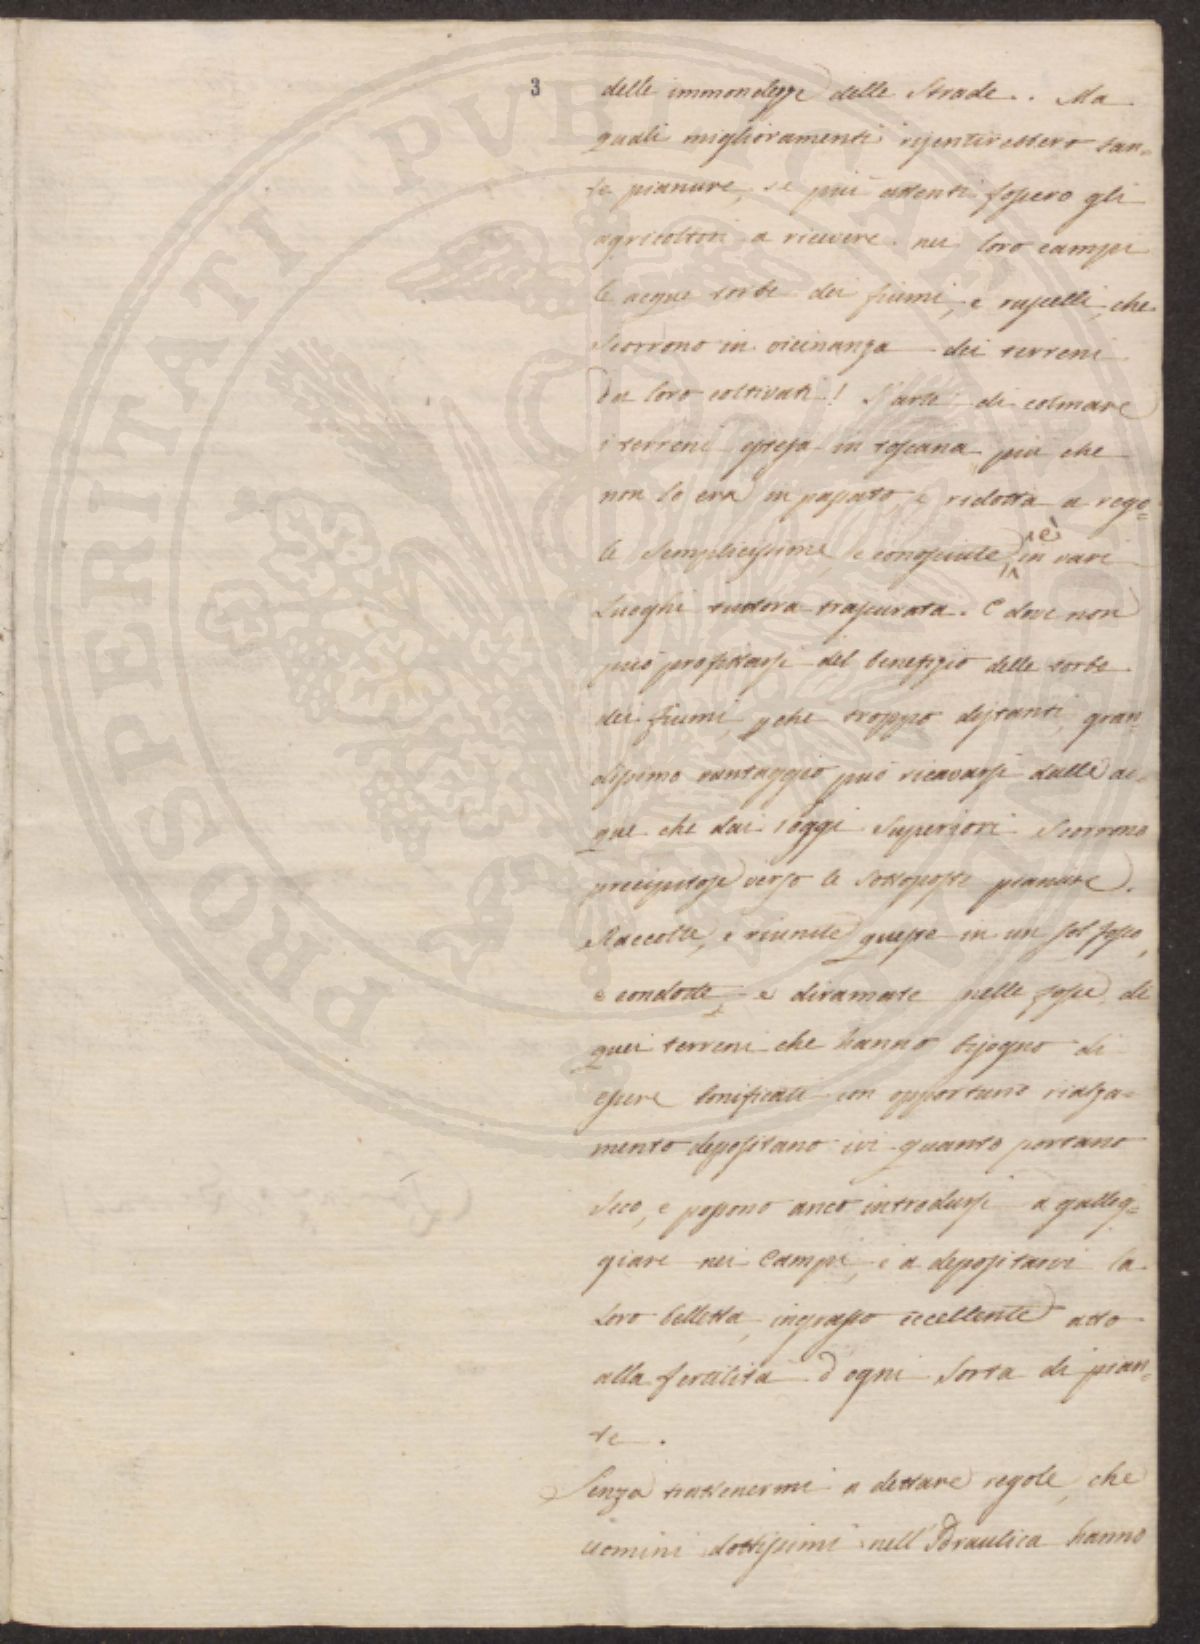 3
delle immondezze delle Strade. Ma
quali miglioramenti risentirebbero tan=
te pianure, se più attenti fossero gli
agricoltori a ricevere nei loro campi
le acque torbe dei fiumi, e ruscelli, che
scorrono in vicinanza dei terreni
da loro coltivati! L'arte di colmare
i terreni estesa in toscana più che
non lo era in passato, e ridotta a rego=
le semplicissime, e conosciute, è in varj
Luoghi tuttora trascurata. E dove non
può profittarsi del benefizio delle torbe
dei fiumi, pche troppo distanti, gran=
dissimo vantaggio può ricavarsi dalle ac=
que che dai Poggi superiori scorrono
precipitose verso le sottoposte pianure.
Raccolte, e riunite queste in un sol fosso,
e condotte, e diramate nelle fosse di
quei terreni che hanno bisogno di
essere bonificati con opportuno rialza=
mento depositano ivi quanto portano
seco, e possono anco introdursi a galleg=
giare nei Campi, e a depositarvi la
loro belletta, ingrasso eccellente atto
alla fertilità d'ogni sorta di pian=
te.
Senza trattenermi a dettare regole, che
uomini dottissimi nell'Idraulica hanno
PROSPERITATI PUBLICAE